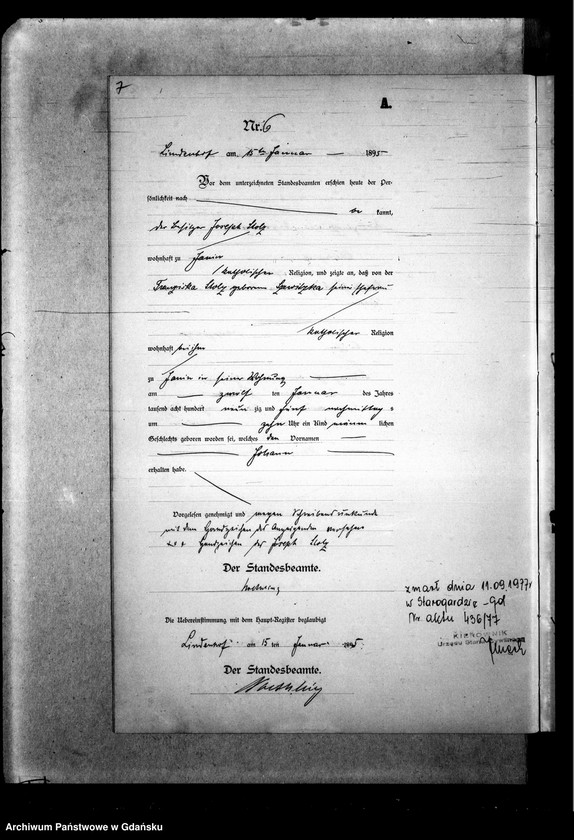 7
A.
Nr. 6
Lindenhof am 15ten Januar 1895
Vor dem unterzeichneten Standesbeamten erschien heute der Per-
sönlichkeit nach be kannt,
der Besitzer Joseph Stolz
wohnhaft zu Janin
katholischer Religion, und zeigte an, daß von der
Franziska Stolz geborenen seiner Ehefrau
katholischer Religion
wohnhaft bei ihm
zu Janin in seiner Wohnung
am zwölf ten Januar des Jahres
tausend acht hundert neun zig und fünf nachmittag s
um zehn Uhr ein Kind männ lichen
Geschlechts geboren worden sei, welches den Vornamen
Johann
erhalten habe.
Vorgelesen genehmigt und wegen Schreibensunkunde
mit dem Handzeichen des Anzeigenden versehen
+++ Handzeichen des Joseph Stolz
Der Standesbeamte.
Die Uebereinstimmung mit dem Haupt-Register beglaubigt
Lindenhof am 15 ten Januar 1895
Der Standesbeamte.
zmarł dnia 11.09.1977r
w Starogardzie -Gd
Nr. aktu 436/77
KIEROWNIK
Urzędu Stanu Cywilnego
Archiwum Państwowe w Gdańsku